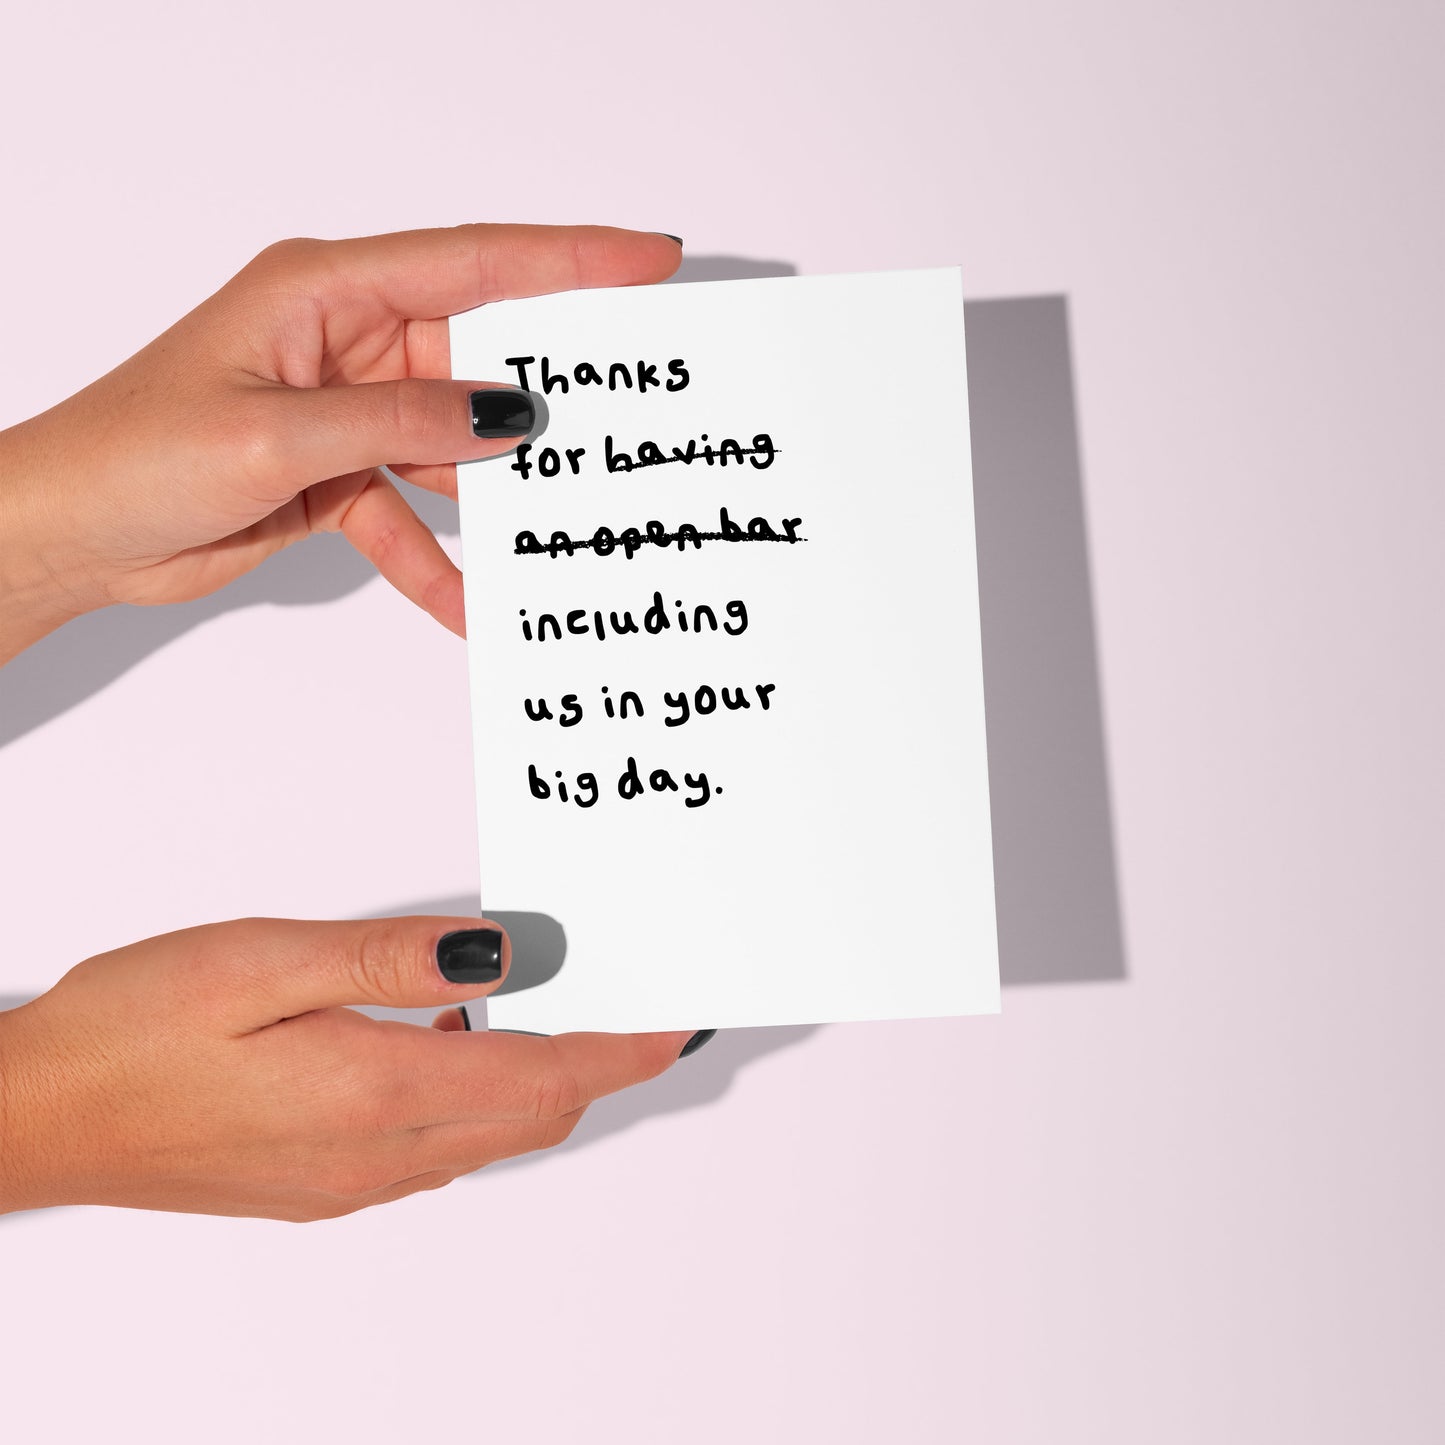 Thanks
for having
an open bar
including
us in your
big day.